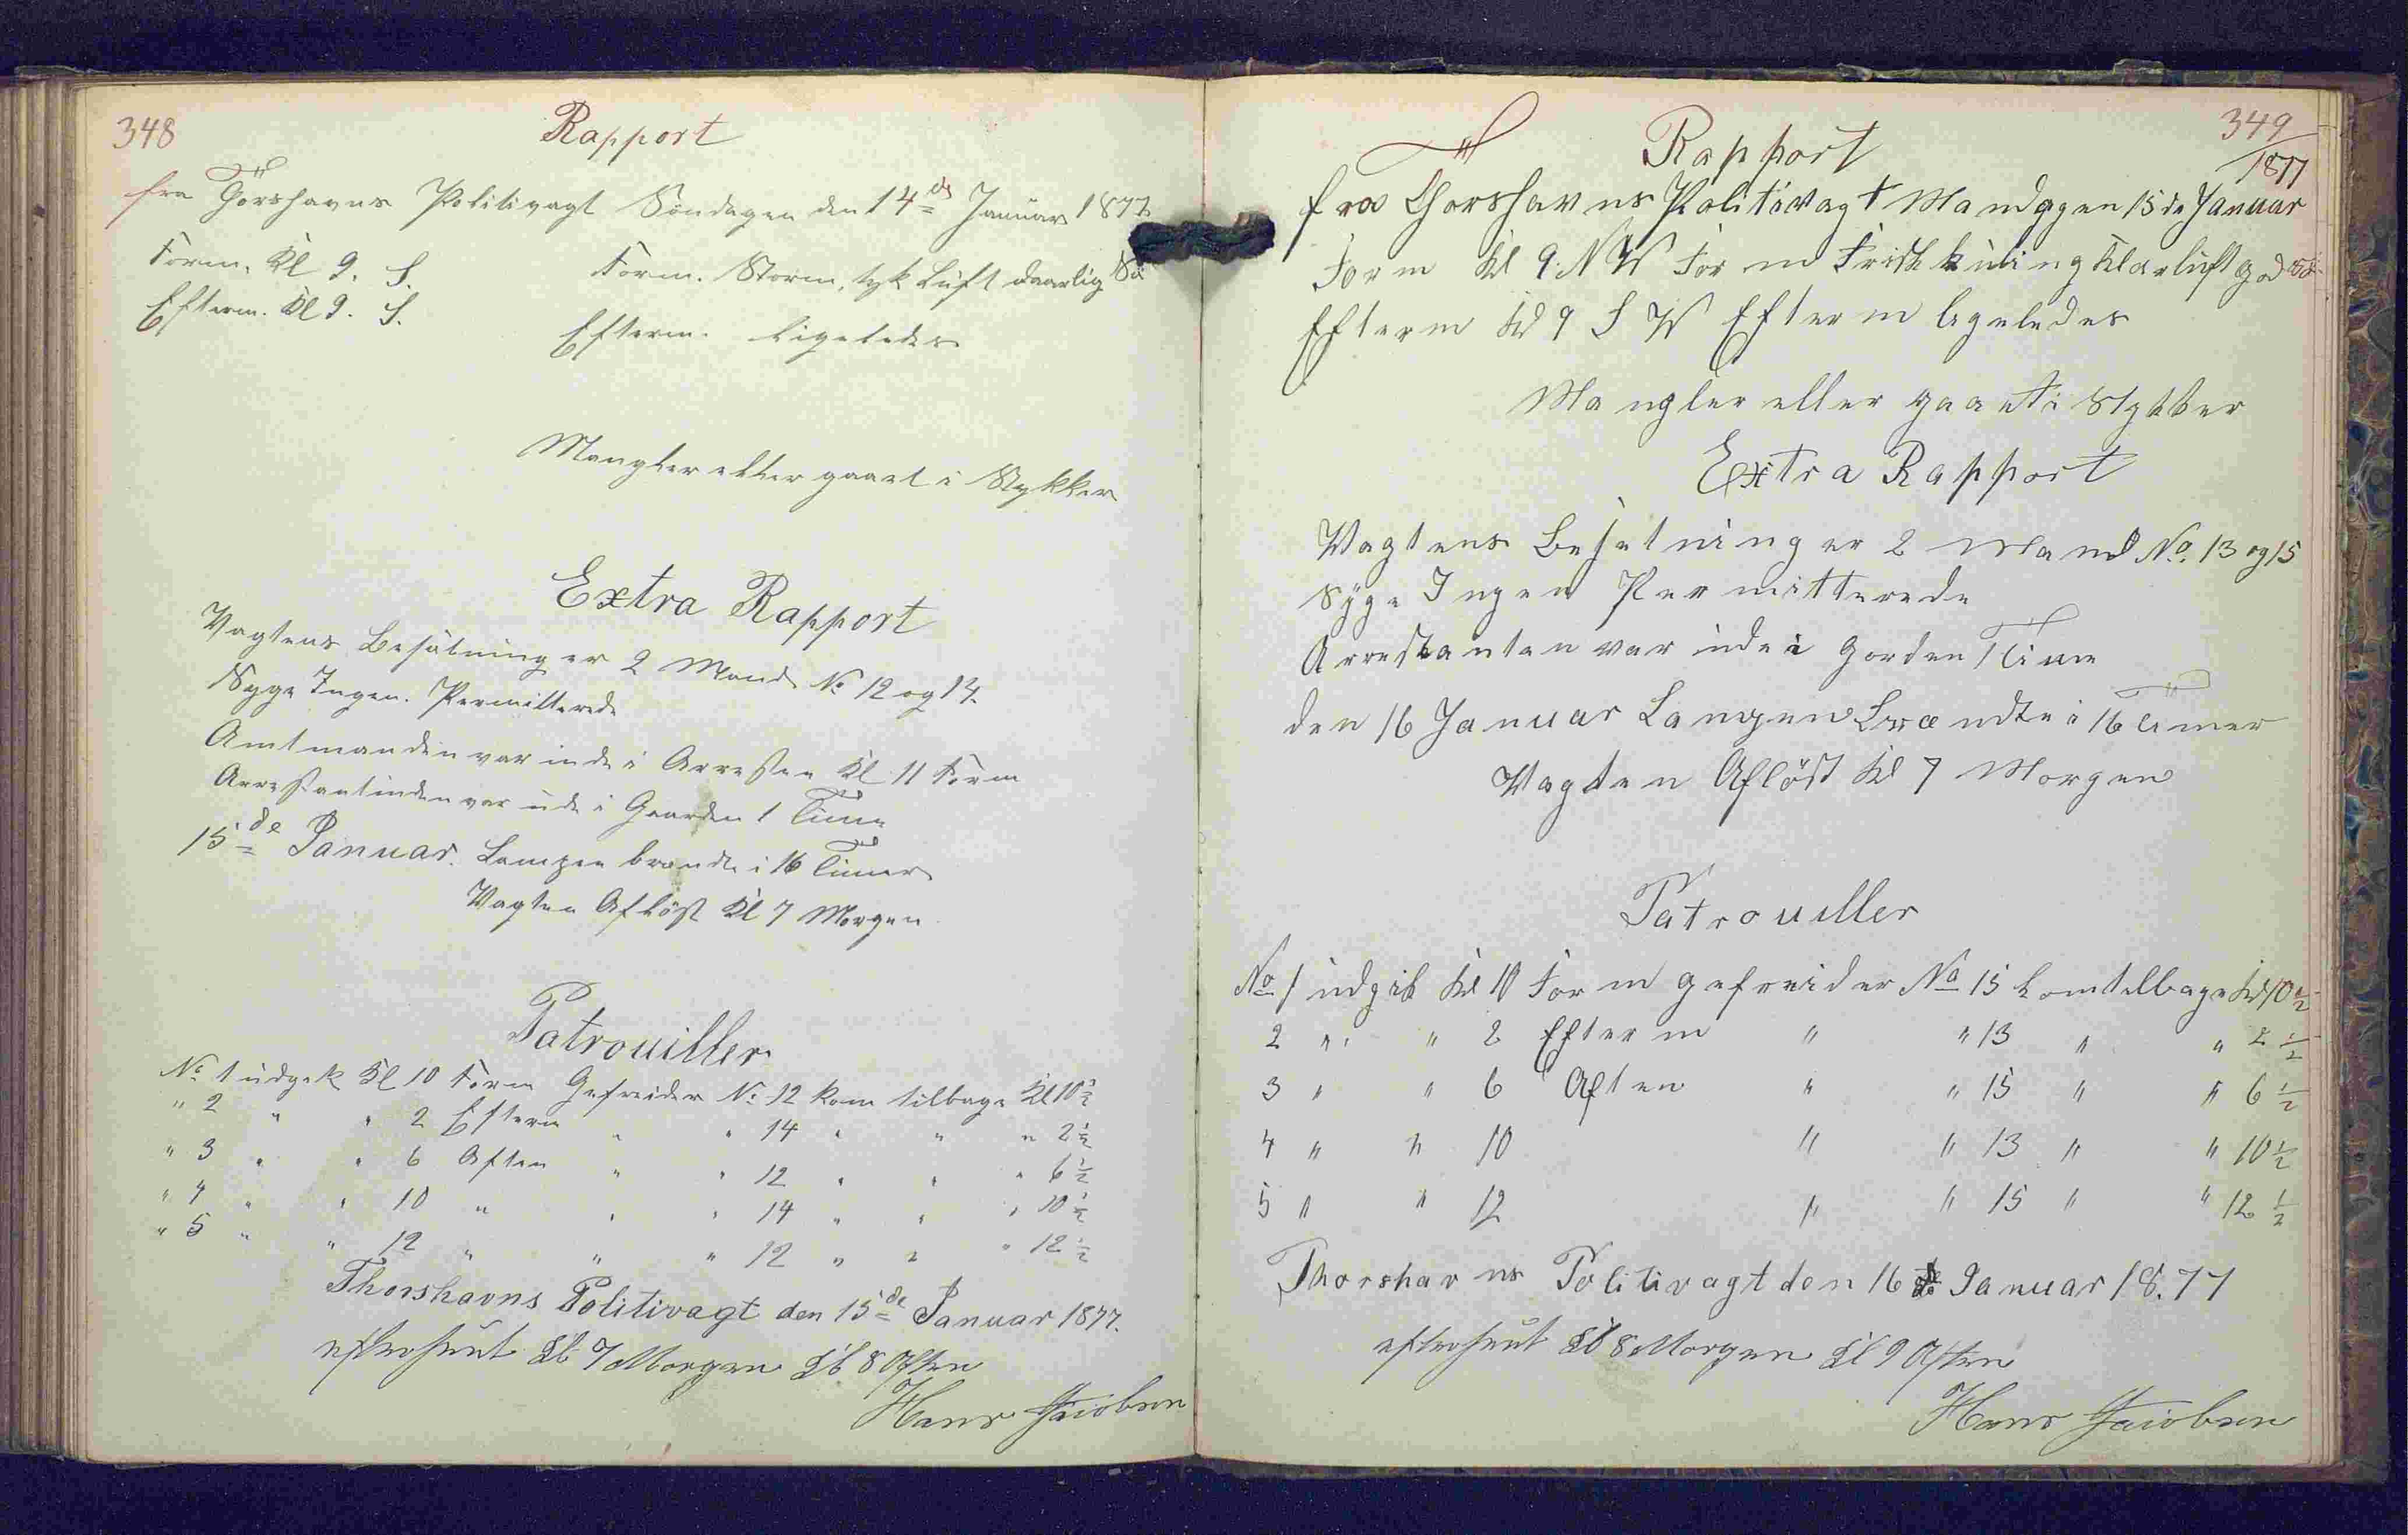 348
Rapport
fra Thorshavns Politivagt Söndagen den 14de Januar 1877
Form. Kl 9. S. Form. Storm, tyk Luft daarlig Sö
Efterm. Kl 9. S. Efterm. ligeledes
Mangler eller gaaet i Stykker
Extra Rapport
Vagtens Besætning er 2 Mand No 12 og 14.
Syge Ingen. Permitterede
Amtmanden var inde i Arresten Kl 11 Form
Arrestantinden var ude i Gaarden 1 Time
15de Januar. Lampen brændte i 16 Timer
Vagten Aflöst Kl 7 Morgen
Patrouiller
No 1 udgik Kl 10 Form Gefreider No 12 kom tilbage Kl 10 1/2
" 2 " " 2 Efterm " " 14 " " " 2 1/2
" 3 " " 6 Aften " " 12 " " " 6 1/2
" 4 " " 10 " " " 14 " " " 10 1/2
" 5 " " 12 " " " 12 " " " 12 1/2
Thorshavns Politivagt den 15de Januar 1877.
efterseet Kl 7 Morgen Kl 8 Aften
Hans Jacobsen
349
1877
Rapport
fra Thorshavns Politivagt Mandagen 15de Januar
Form Kl 9. NW Form Frisk kuling Klarluft god Sö
Efterm Kl 9 S W Efterm ligeledes
Mangler eller gaaet i Stykker
Extra Rapport
Vagtens Besetning er 2 Mand No. 13 og 15
Syge Ingen Permitterede
Arrestanten var ude i Gorden 1 Time
den 16 Januar Lampen Brændte i 16 Timer
Vagten Aflöst Kl 7 Morgen
Patrouiller
No 1 udgik Kl 10 Form gefreider No 15 kom tilbage Kl 10 1/2
2 " " 2 Efterm " " 13 " " 2 1/2
3 " " 6 Aften " " 15 " " 6 1/2
4 " " 10 " " 13 " " 10 1/2
5 " " 12 " " 15 " " 12 1/2
Thorshavns Politivagt den 16de Januar 18.77
efterseet Kl 8 Morgen Kl 9 Aften
Hans Jacobsen